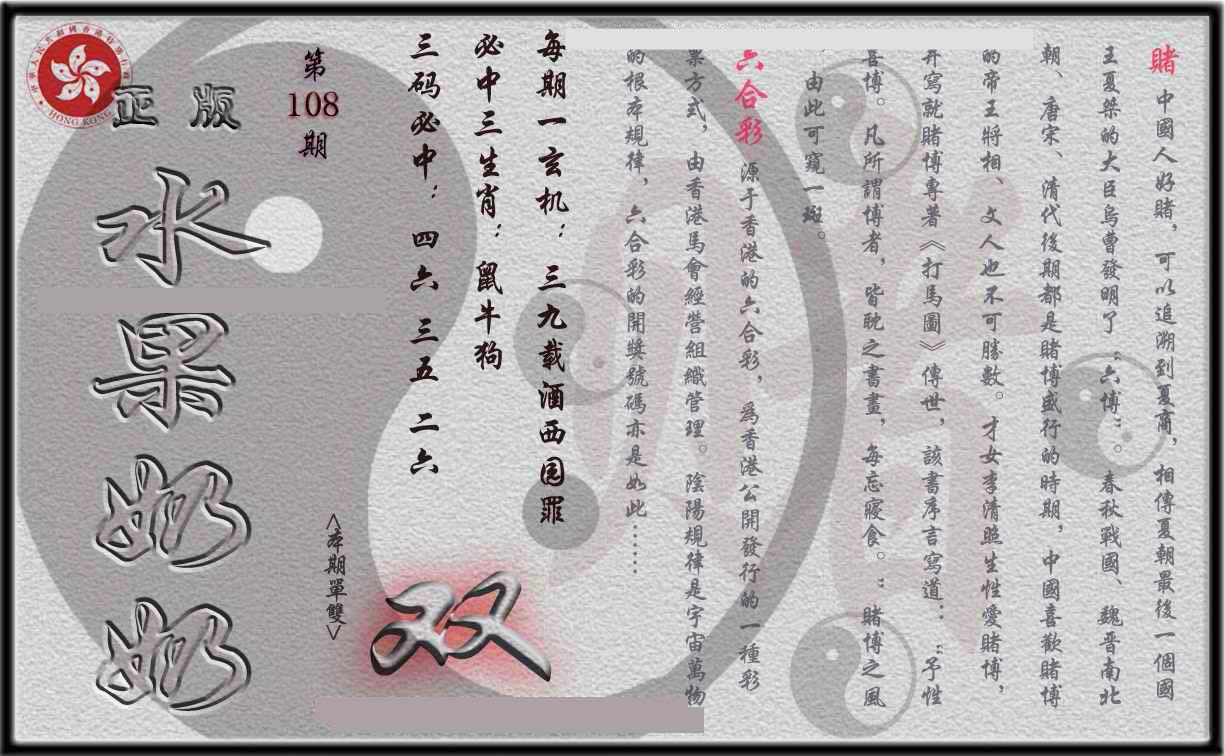 賭 中國人好賭，可以追溯到夏商，相傳夏朝最後一個國
王夏桀的大臣烏曹發明了“六博”。春秋戰國、魏晋南北
朝、唐宋、清代後期都是賭博盛行的時期，中國喜歡賭博
的帝王將相、文人也不可勝數。才女李清照生性愛賭博，
并寫就賭博專著《打馬圖》傳世，該書序言寫道：“予性
喜博。凡所謂博者，皆耽之書畫，每忘寢食。”賭博之風
由此可窺一斑。
六合彩 源于香港的六合彩，爲香港公開發行的一種彩
票方式，由香港馬會經營組織管理。陰陽規律是宇宙萬物
的根本規律，六合彩的開獎號碼亦是如此……
每期一玄机：三九载酒西园罪
必中三生肖：鼠牛狗
三码必中：四六 三五 二六
<本期單雙>
双
第
108
期
正版
水果奶奶
HONG KONG